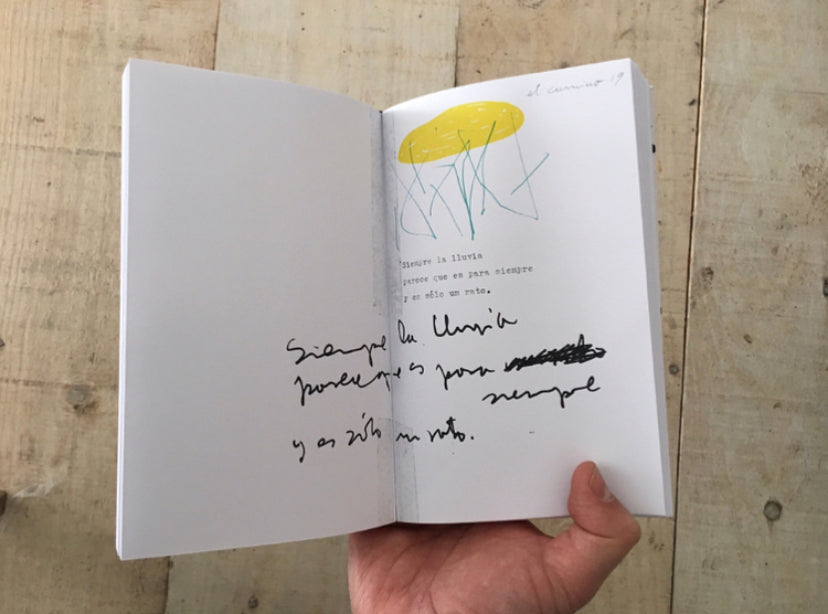 el camino 19
Siempre la lluvia
parece que es para siempre
y es sólo un rato.
Siempre la lluvia
parece que es para
siempre
y es sólo un rato.